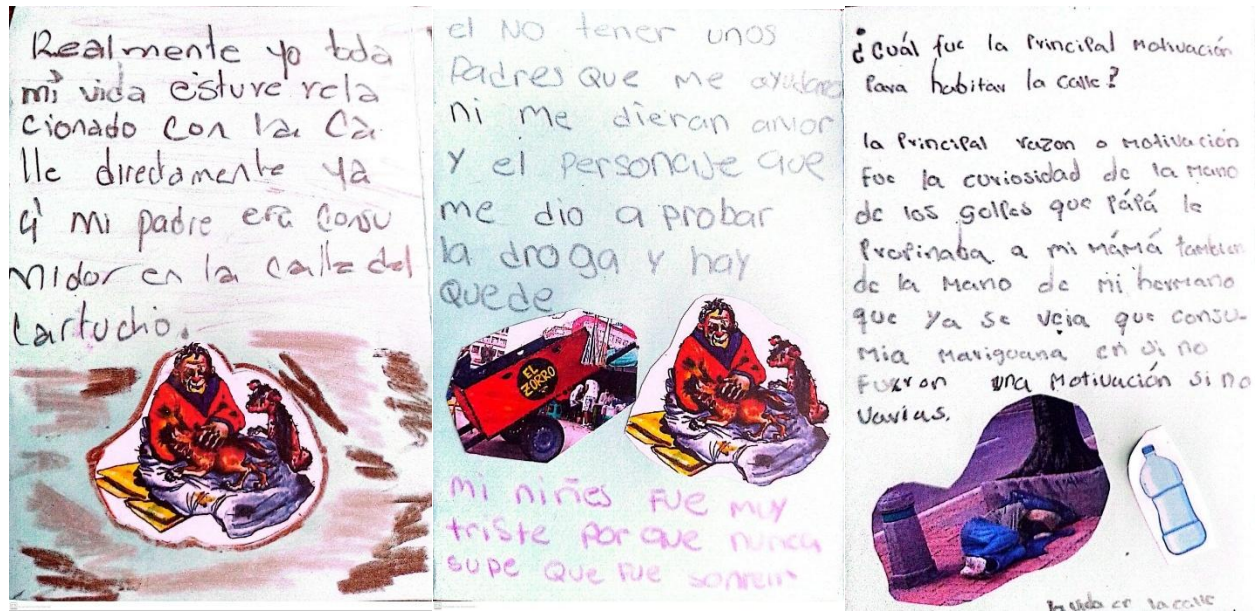 Realmente yo toda
mi vida esture rela
cionado con la ca
lle directamente ya
q' mi padre era consu
midor en la calle del
cartucho.
el NO tener unos
Padres que me ayudaran
ni me dieran amor
Y el Personaje que
me dio a probar
la droga y hay
Quede
EL
ZORRO
mi niñes FUE muy
triste Por que nunca
supe que FUE sonreir
¿Cuál fue la Principal motivación
Para habitar la calle?
la Principal razon o motivación
Fue la curiosidad de la mano
de los golpes que Pápá le
Propinaba a mi mámá tambien
de la mano de mi hermano
que ya se veia que consu-
mia mariguana en si no
Fueron una motivación si no
varias.
la vida en la calle